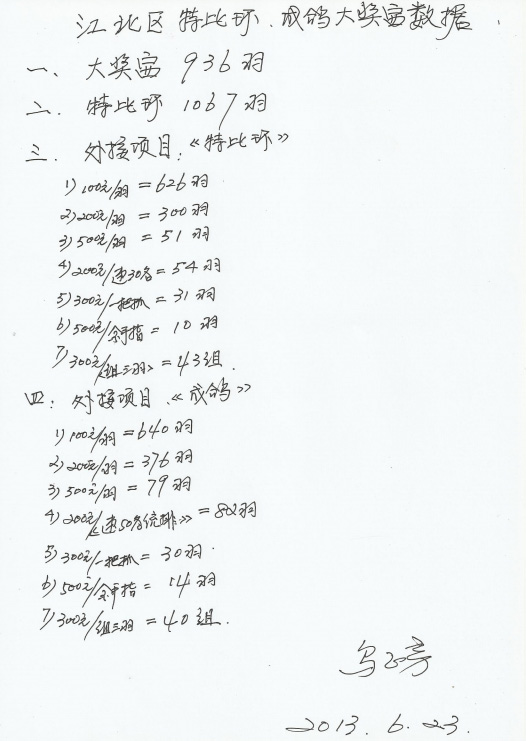 江北区特比环、成鸽大奖赛数据
一、大奖赛 936羽
二、特比环 1067羽
三、外接项目:《特比环》
1)100元/羽=626羽
2)200元/羽=300羽
3)500元/羽=51羽
4)200元/速30名=54羽
5)300元/一把抓=31羽
6)500元/拿手指=10羽
7)300元/《组三羽》=43组.
四:外接项目《成鸽》
1)100元/羽=640羽
2)200元/羽=376羽
3)500元/羽=79羽
4)200元/《速50名统排》=82羽
5)300元/一把抓=30羽.
6)500元/伞手指=14羽
7)300元/组三羽=40组.
2013.6.23.